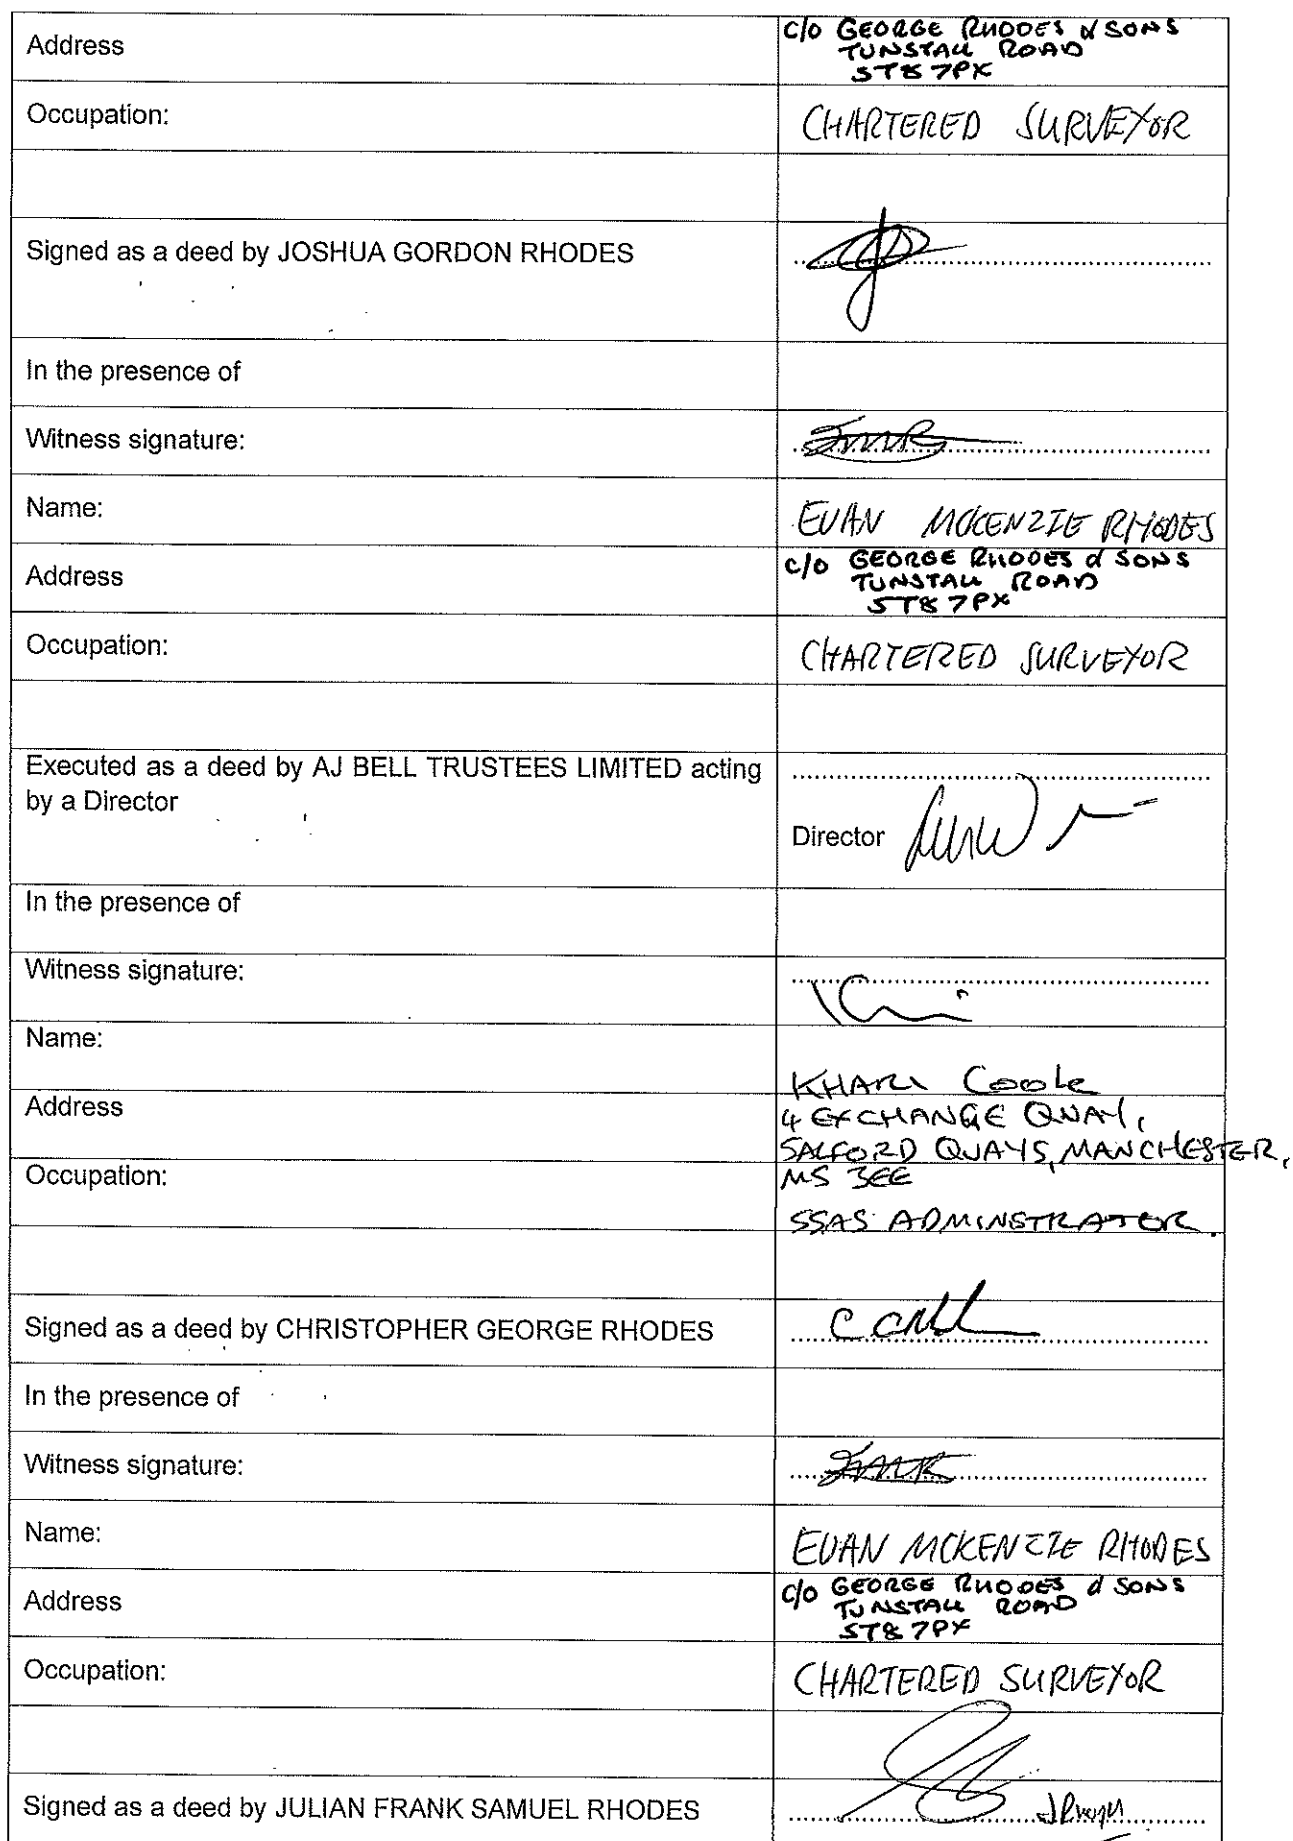 Address
C/O GEORGE RHODES & SONS
TUNSTALL ROAD
ST8 7PX
Occupation:
CHARTERED SURVEYOR
Signed as a deed by JOSHUA GORDON RHODES
In the presence of
Witness signature:
Name:
EUAN MCKENZIE RHODES
Address
C/O GEORGE RHODES & SONS
TUNSTALL ROAD
ST8 7PX
Occupation:
CHARTERED SURVEYOR
Executed as a deed by AJ BELL TRUSTEES LIMITED acting
by a Director
Director
In the presence of
Witness signature:
Name:
KHARI Cooke
Address
4 EXCHANGE QUAY,
SALFORD QUAYS, MANCHESTER,
Occupation:
M5 3EE
SSAS ADMINSTRATOR.
Signed as a deed by CHRISTOPHER GEORGE RHODES
In the presence of
Witness signature:
Name:
EUAN MCKENZIE RHODES
Address
C/O GEORGE RHODES & SONS
TUNSTALL ROAD
ST8 7PX
Occupation:
CHARTERED SURVEYOR
Signed as a deed by JULIAN FRANK SAMUEL RHODES